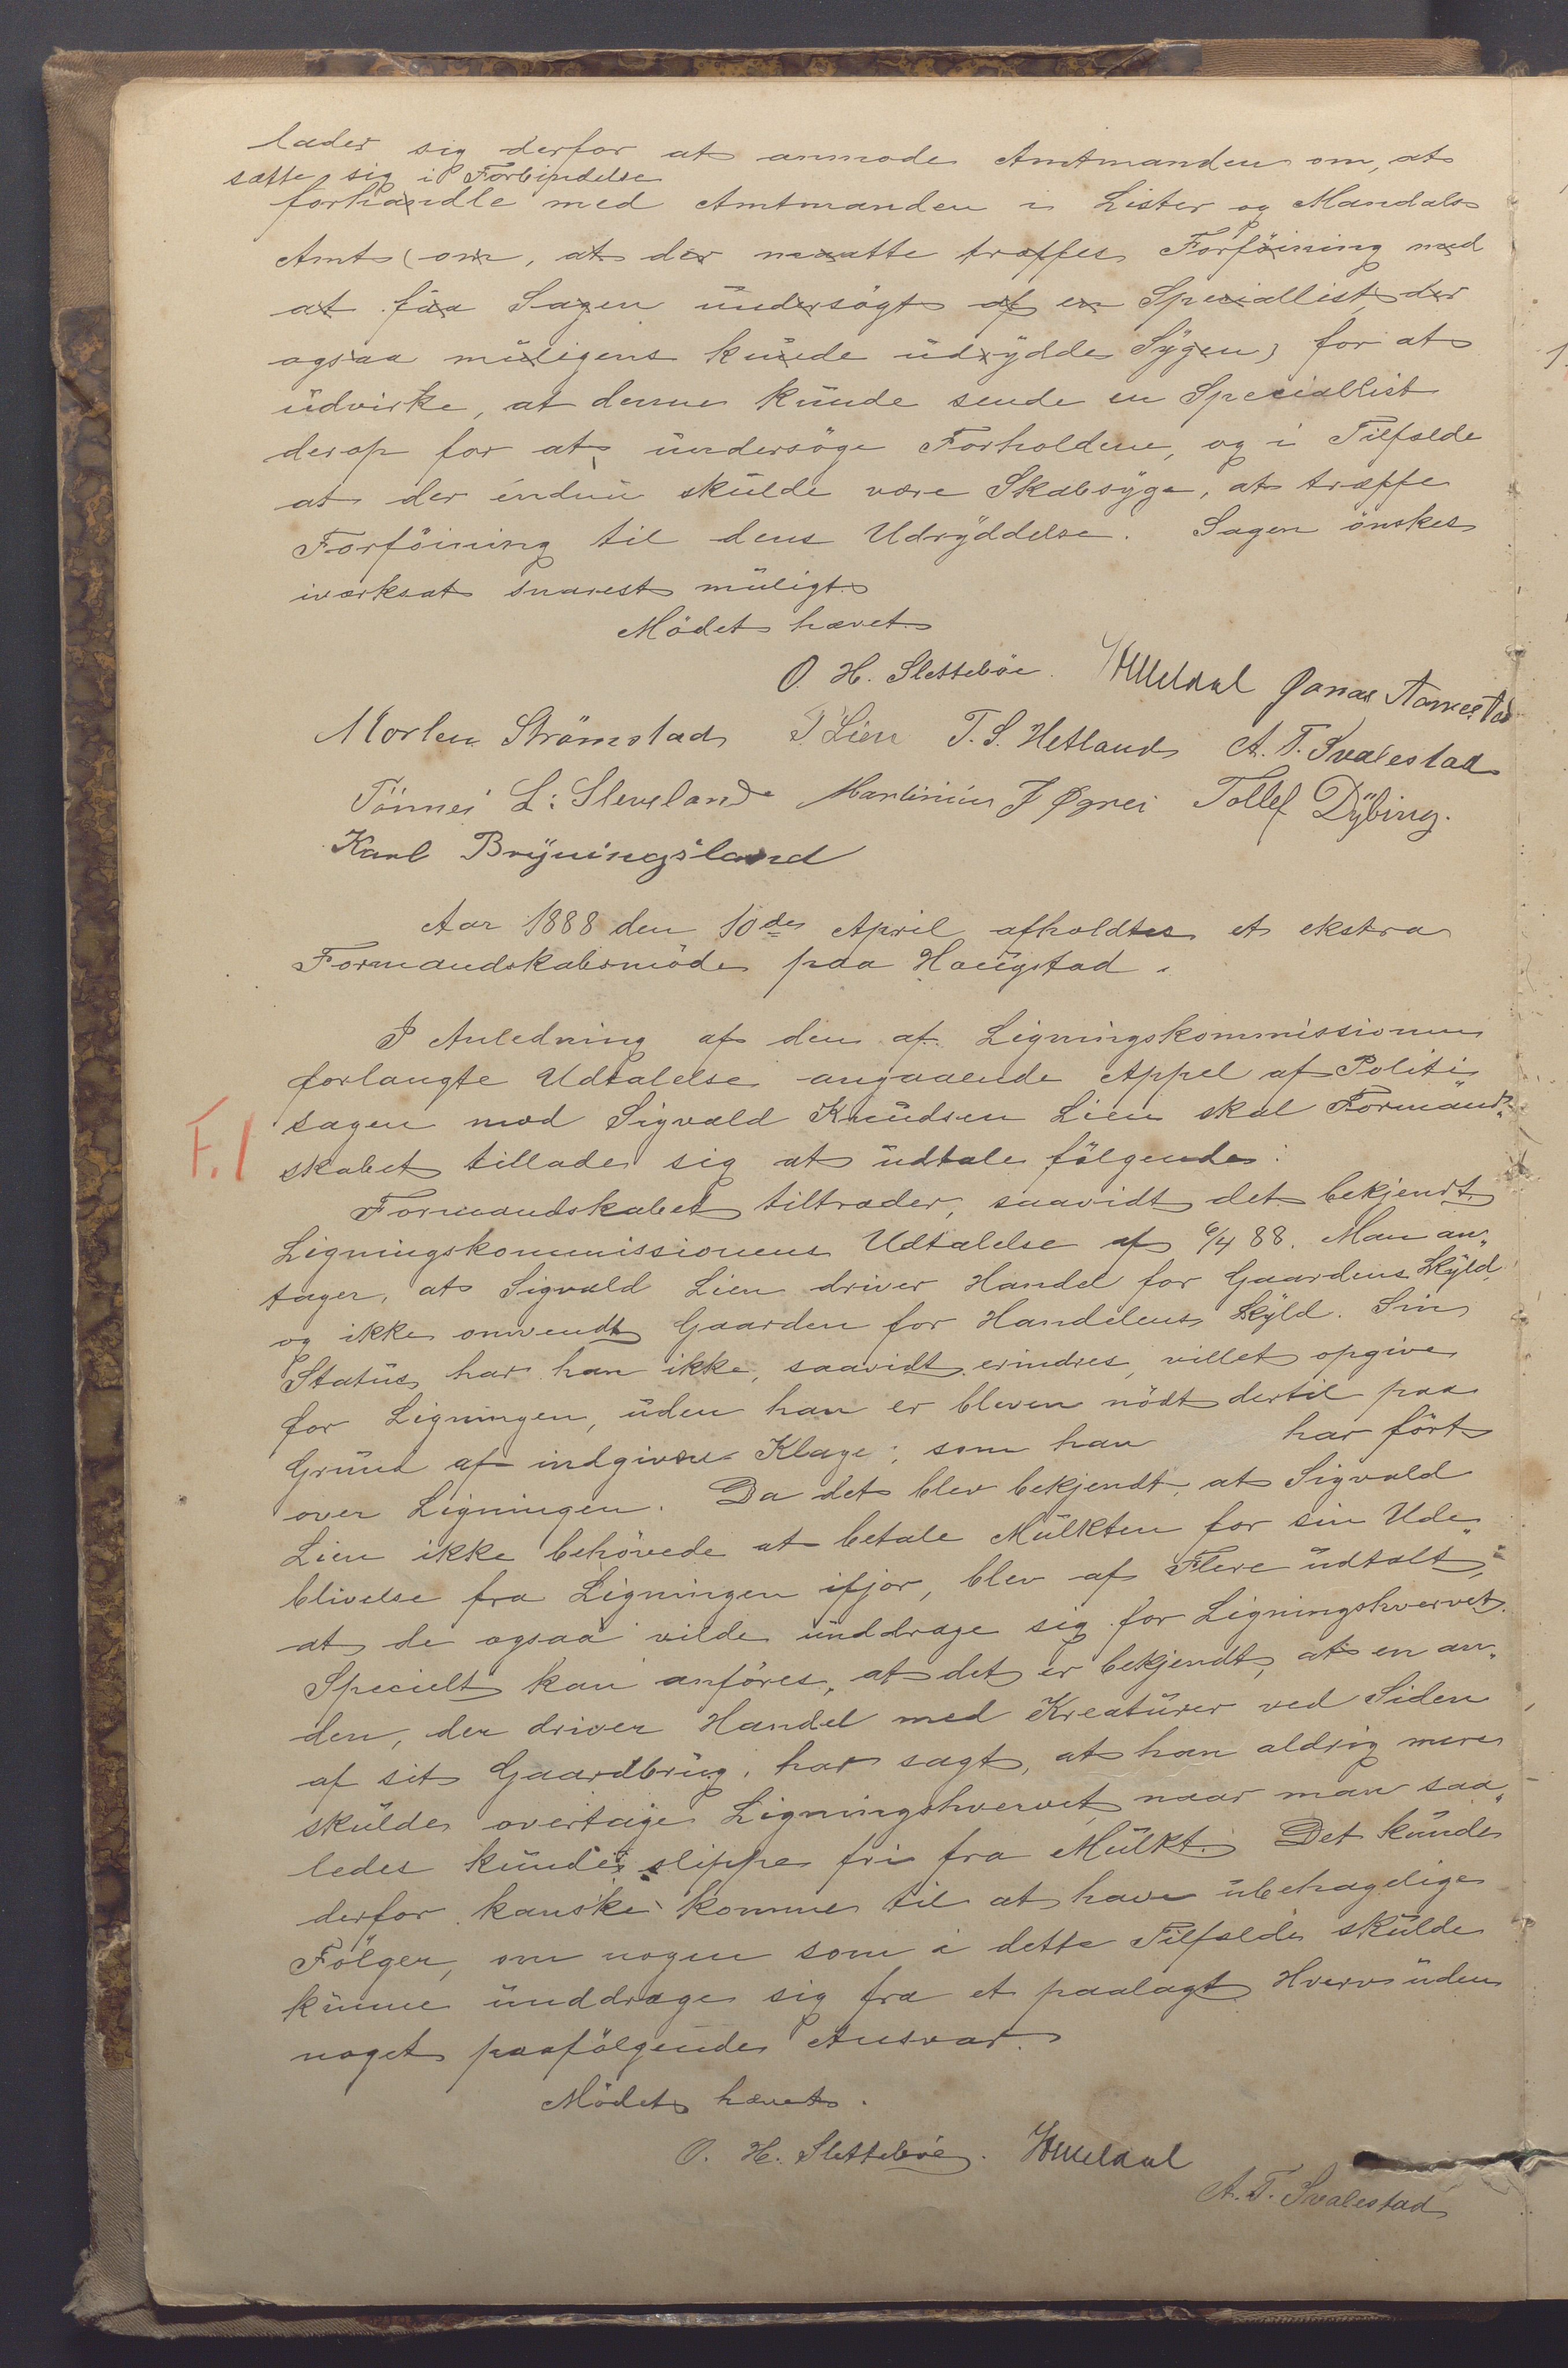 lader sig derfor at anmode Amtmanden om, at
sætte sig i Forbindelse
forhandle med Amtmanden i Lister og Mandals
Amt (om, at der maatte træffes Forföining med
at faa Sagen undersögt af en Speciallist, der
ogsaa muligens kunde udrydde Sygen) for at
udvirke, at denne kunde sende en Speciallist
derop for at undersöge Forholdene, og i Tilfælde
at der endnu skulde være Skabsyge, at træffe
Forföining til dens Udryddelse. Sagen önskes
iværksat snarest muligt.
Mödet hævet
O. H. Sletteböe. Jonas Aamestad
Morten Strömstad T Lien T. S. Hetland A. T. Svalestad
Tönnes L. Sleveland Martinius J Øgrei Tollef Dybing.
Karl Bryningsland
Aar 1888 den 10de April afholdtes et ekstra
Formandskabsmöde paa Haugstad.
I Anledning af den af Ligningskommissionen
forlangte Udtalelse angaaende Appel af Politi
sagen mod Sigvald Knudsen Lien skal Formand„
F. 1
skabet tillade sig at udtale fölgende:
Formandskabet tiltræder, saavidt det bekjendt
Ligningskommissionens Udtalelse af 6/4 88. Man an„
tager, at Sigvald Lien driver Handel for Gaardens Skyld
og ikke omvendt Gaarden for Handelens Skyld. Sin
Status har han ikke, saavidt erindres, villet opgive
for Ligningen, uden han er bleven nödt dertil paa
Grund af indgiven Klage; som han har fört
over Ligningen. Da det blev bekjendt, at Sigvald
Lien ikke behövede at betale Mulkten for sin Ude„
blivelse fra Ligningen ifjor, blev af Flere udtalt,
at de ogsaa vilde unddrage sig for Ligningshvervet.
Specielt kan anföres, at det er bekjendt, at en an„
den, der driver Handel med Kreaturer ved Siden
af sit Gaardbrug, har sagt, at han aldrig mere
skulde overtage Ligningshvervet, naar man saa„
ledes kunde slippe fri fra Mulkt. Det kunde
derfor kanske komme til at have ubehagelige
Fölger, om nogen som i dette Tilfælde skulde
kunne unddrage sig fra et paalagt Hverv uden
noget paafölgende Ansvar.
Mödet hævet.
O. H. Sletteböe.
A. T. Svalestad